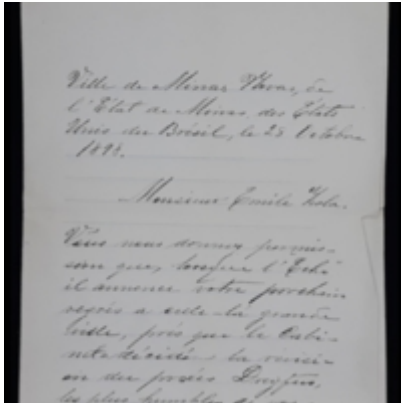 Ville de Minas Novas, de
l'État de Minas, des États
Unis du Brésil, le 28 Octobre
1898.
Monsieur Emile Zola.
Vous nous donnez permis-
sion que, lorsque l'Echo
il annonce votre prochain
a cette la grande
liste, près que le Cabi-
nete décidé la révisi-
on du procès Dreyfus,
les plus humbles de vos